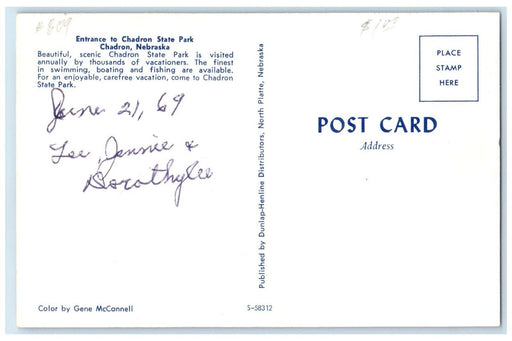 #809
Entrance to Chadron State Park
Chadron, Nebraska
Beautiful, scenic Chadron State Park is visited
annually by thousands of vacationers. The finest
in swimming, boating and fishing are available.
For an enjoyable, carefree vacation, come to Chadron
State Park.
June 21, 69
Lee, Jennie &
Dorothylee
Color by Gene McConnell
Published by Dunlap-Henline Distributors, North Platte, Nebraska
S-58312
PLACE
STAMP
HERE
POST CARD
Address